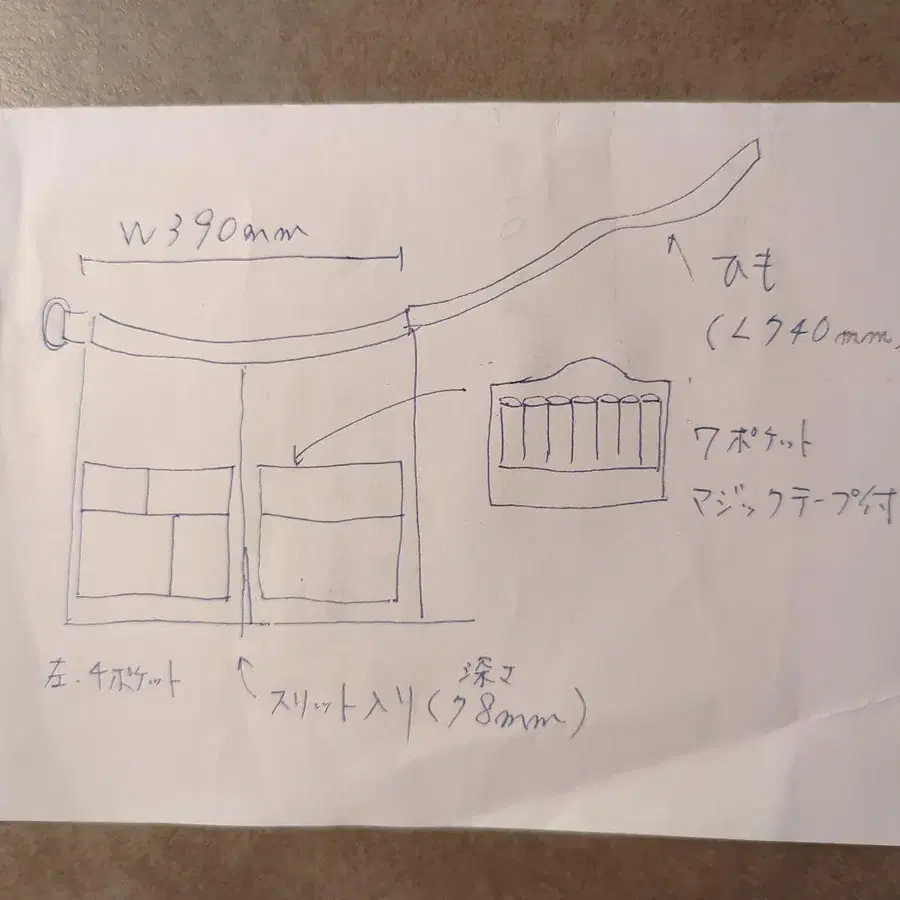 W390mm
ひも
(L740mm)
7ポケット
マジックテープ付
左.4ポケット
深さ
スリット入り(78mm)